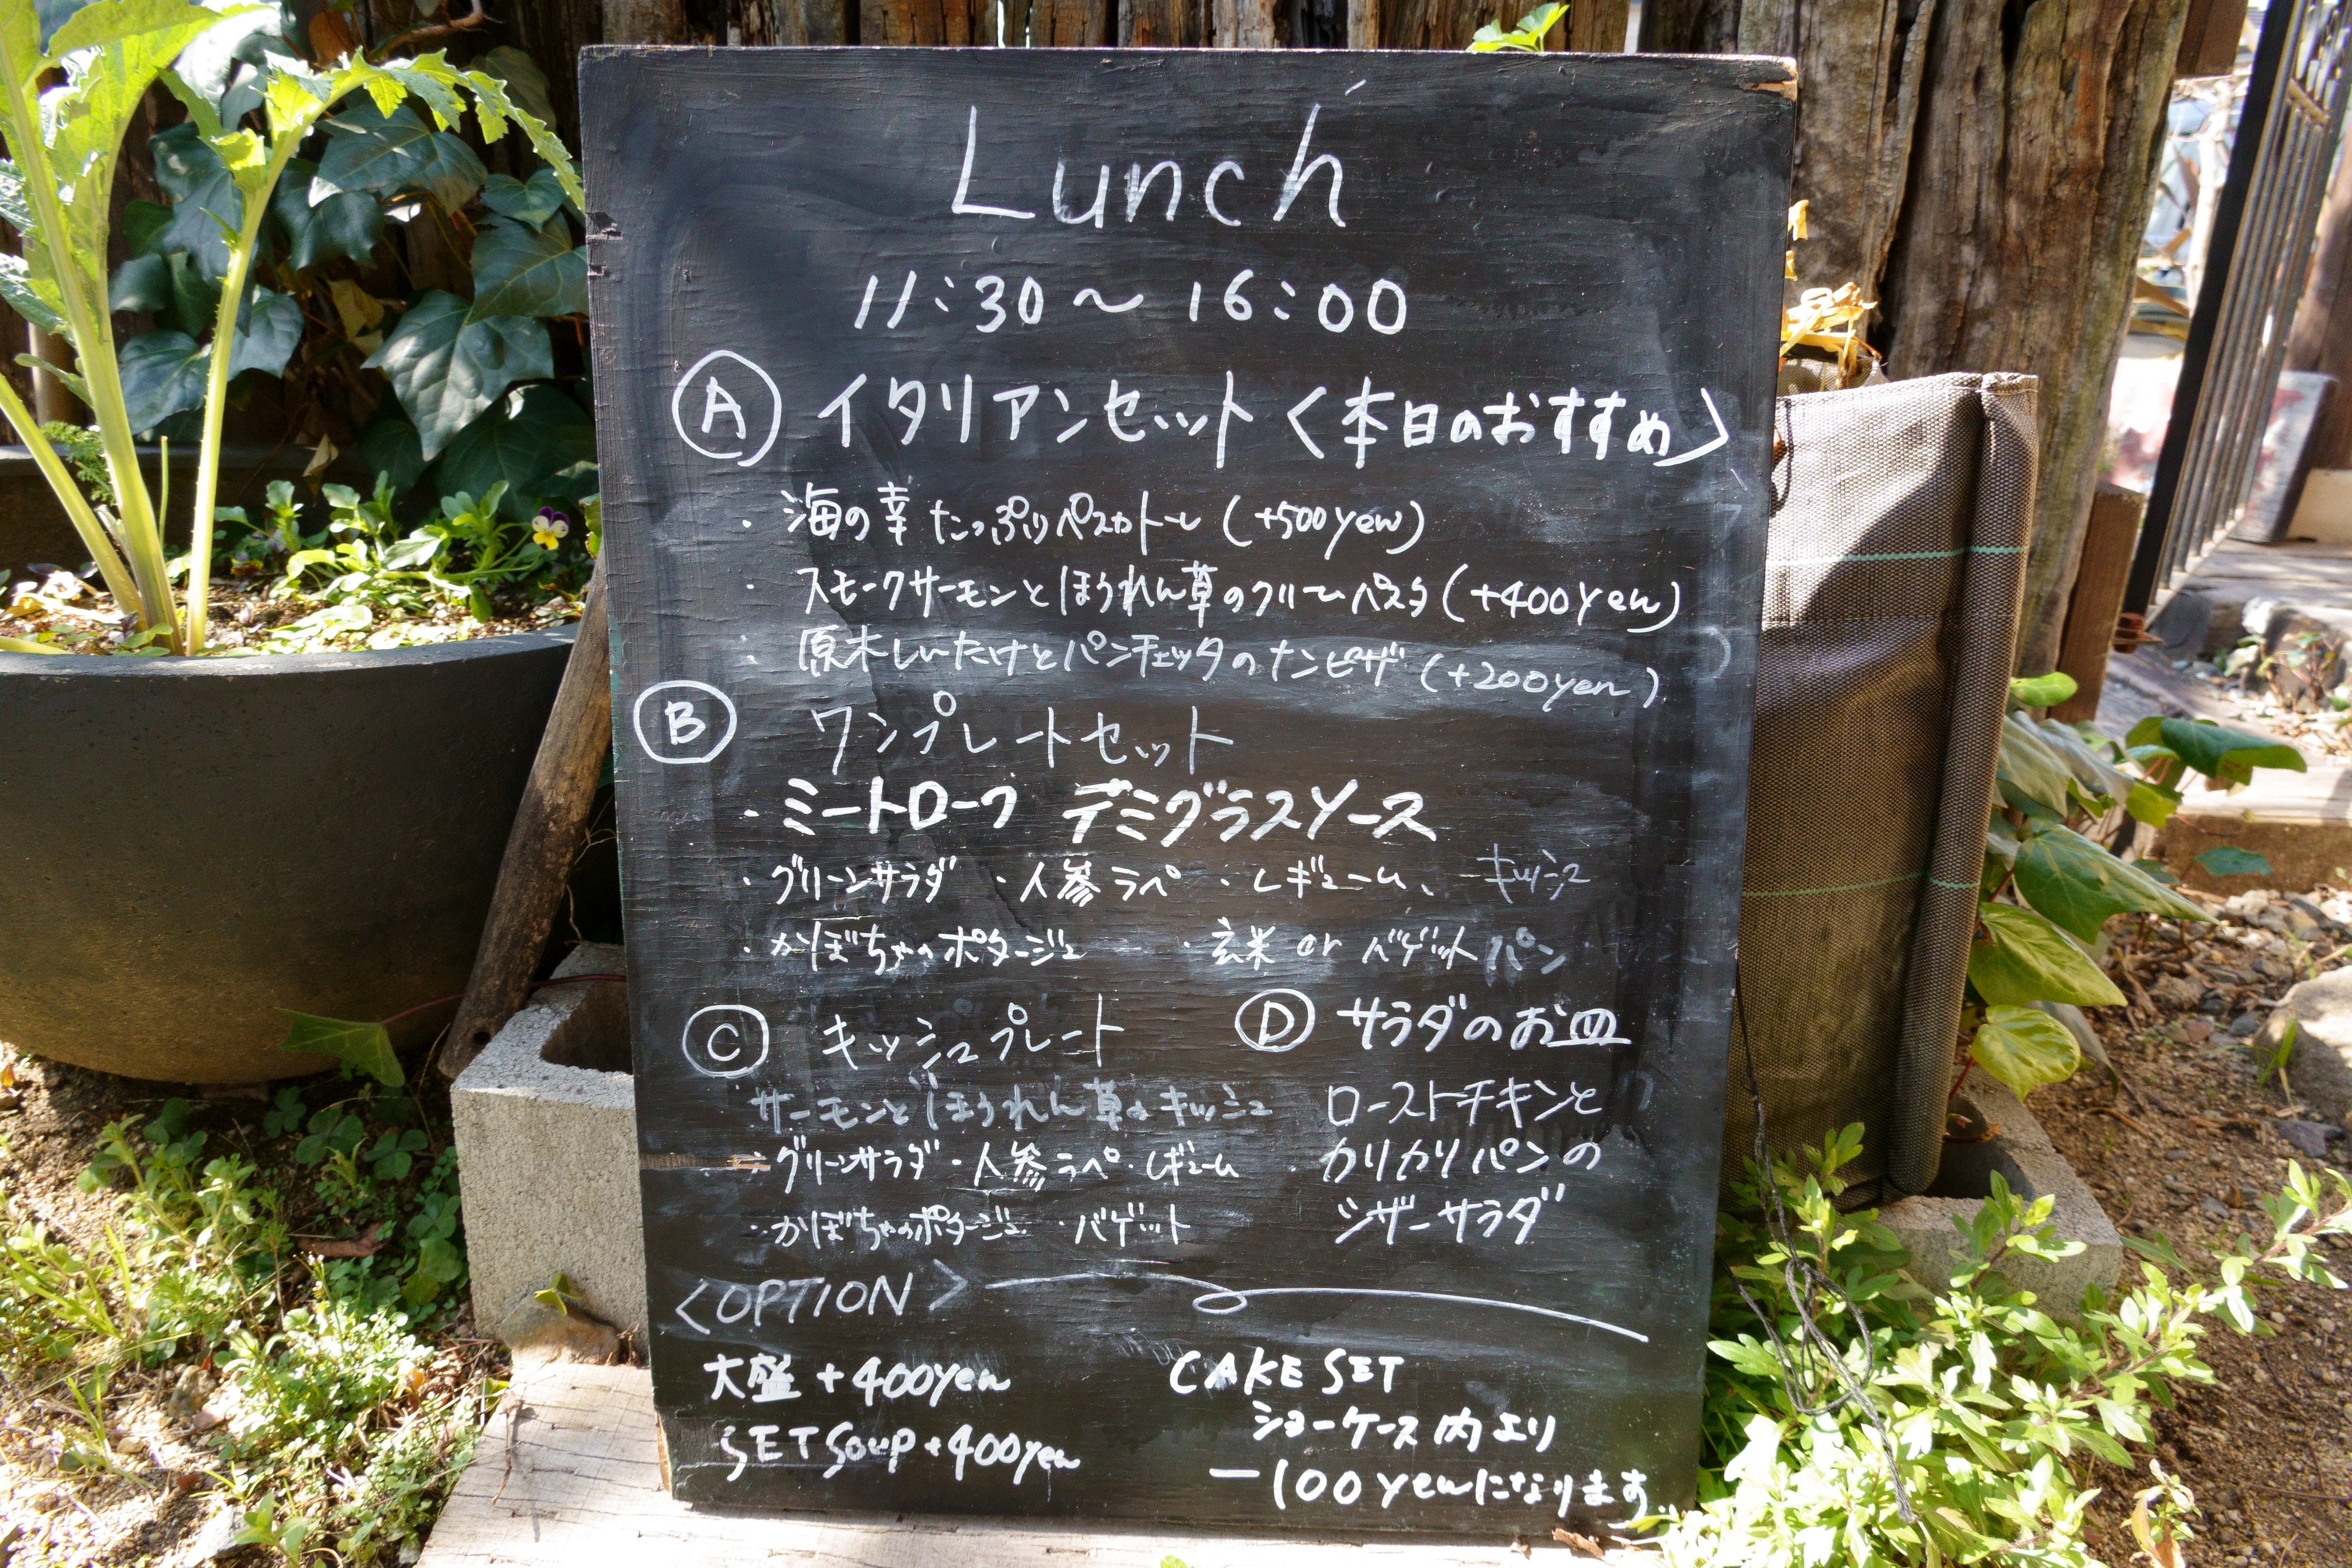 Lunch
11:30〜16:00
Ⓐ イタリアンセット〈本日のおすすめ〉
・海の幸たっぷりペスカトーレ (+500yen)
・スモークサーモンとほうれん草のクリームパスタ (+400yen)
・原木しいたけとパンチェッタのナンピザ (+200yen)
Ⓑ ワンプレートセット
・ミートローフ デミグラスソース
・グリーンサラダ ・人参ラペ ・レギューム、キッシュ
・かぼちゃのポタージュ ・玄米 or バゲット パン
Ⓒ キッシュプレート
サーモンとほうれん草のキッシュ
・グリーンサラダ・人参ラペ・レギューム
・かぼちゃのポタージュ ・バゲット
Ⓓ サラダのお皿
ローストチキンと
カリカリパンの
シーザーサラダ
〈OPTION〉
大盛 +400yen
SET SOUP +400yen
CAKE SET
ショーケース内より
ー100yenになります